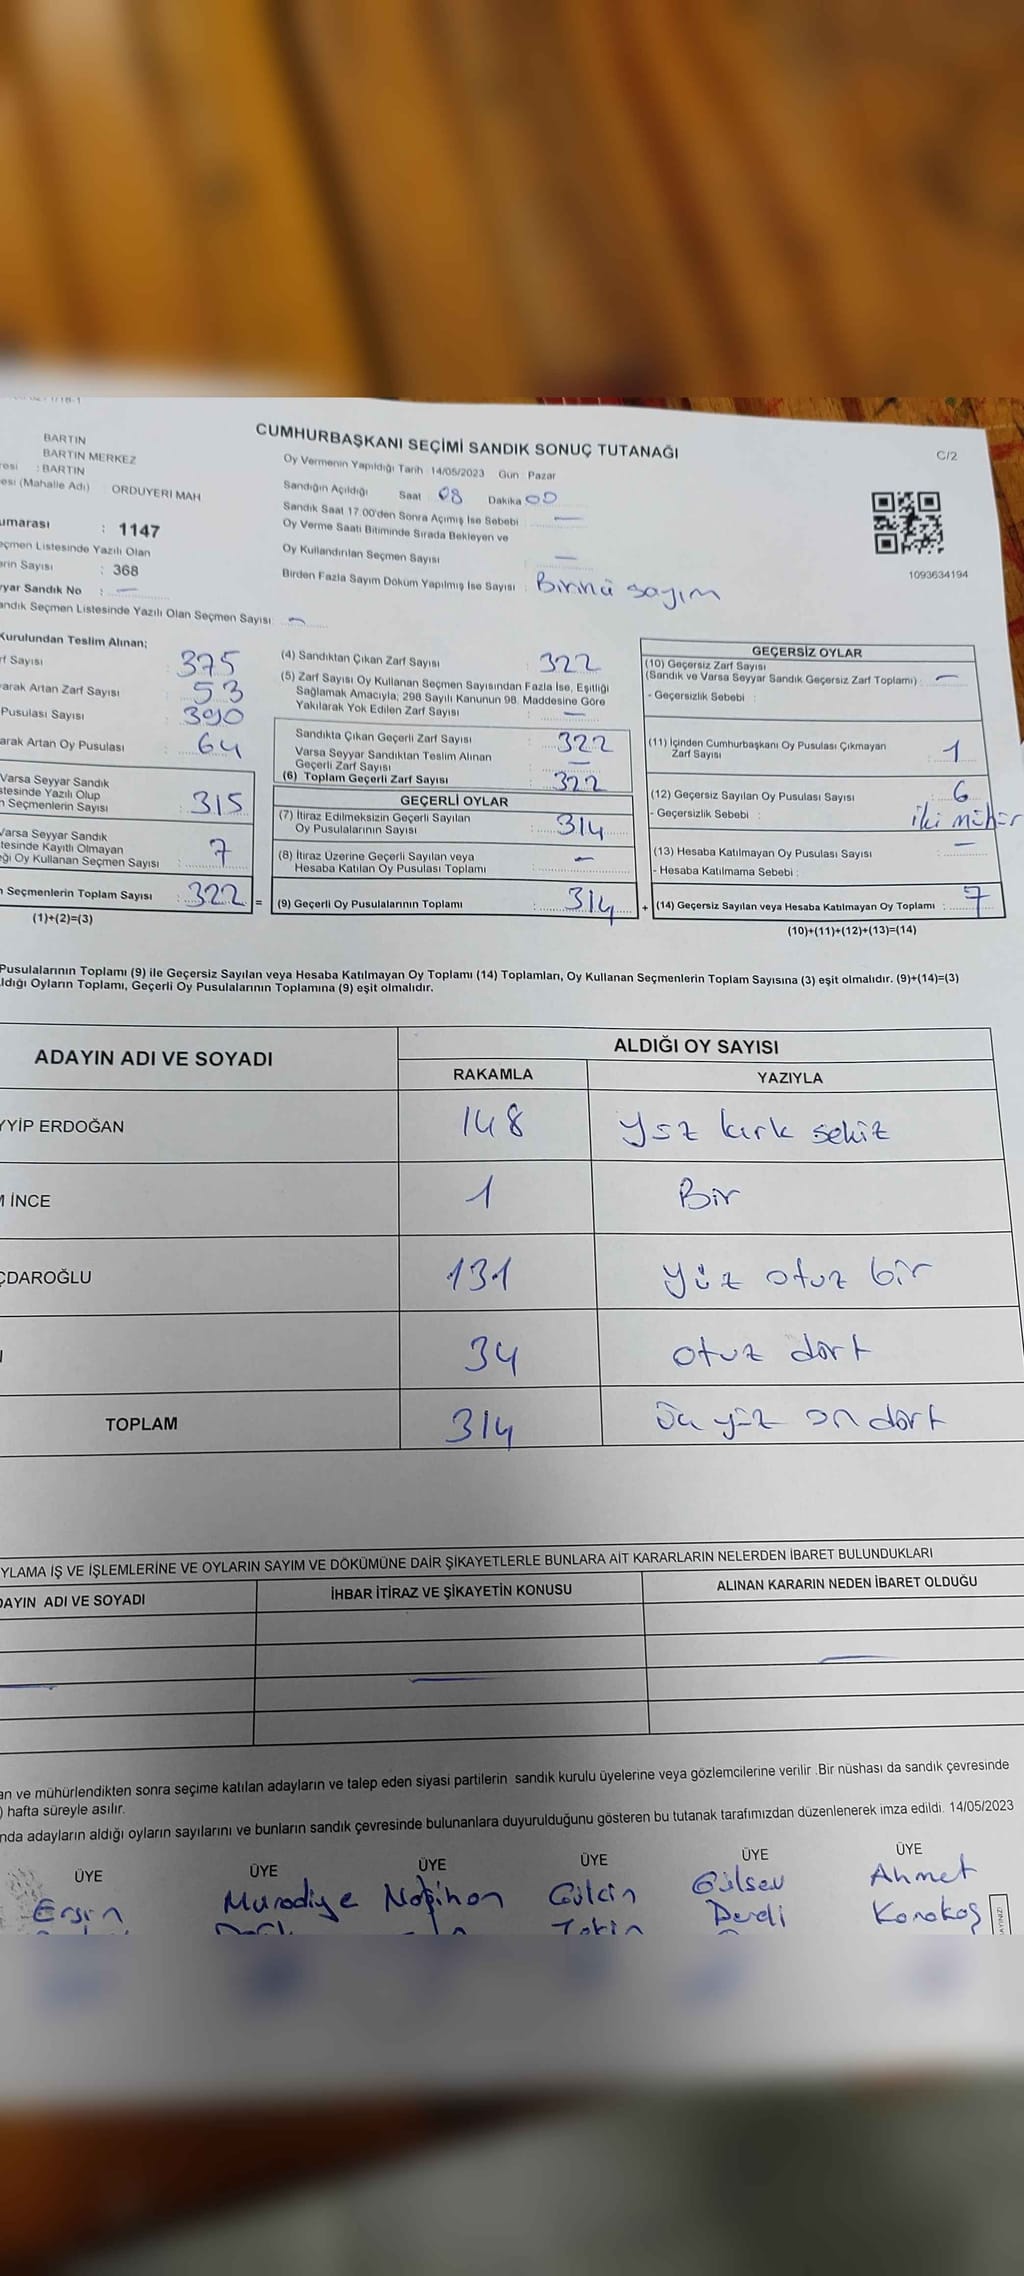 CUMHURBAŞKANI SEÇİMİ SANDIK SONUÇ TUTANAĞI
C/2
BARTIN
BARTIN MERKEZ
: BARTIN
esi (Mahalle Adı) : ORDUYERİ MAH
Oy Vermenin Yapıldığı Tarih 14/05/2023 Gün Pazar
Sandığın Açıldığı Saat 08 Dakika 00
Sandık Saat 17.00'den Sonra Açımış İse Sebebi : —
Oy Verme Saati Bitiminde Sırada Bekleyen ve
Oy Kullandırılan Seçmen Sayısı : —
Birden Fazla Sayım Döküm Yapılmış İse Sayısı : Birinci sayım
1093634194
umarası : 1147
eçmen Listesinde Yazılı Olan
rin Sayısı : 368
yar Sandık No : —
andık Seçmen Listesinde Yazılı Olan Seçmen Sayısı: —
Kurulundan Teslim Alınan;
rf Sayısı : 375
arak Artan Zarf Sayısı : 53
Pusulası Sayısı : 390
arak Artan Oy Pusulası : 64
Varsa Seyyar Sandık
stesinde Yazılı Olup
n Seçmenlerin Sayısı : 315
Varsa Seyyar Sandık
tesinde Kayıtlı Olmayan
eği Oy Kullanan Seçmen Sayısı : 7
n Seçmenlerin Toplam Sayısı : 322 =
(1)+(2)=(3)
(4) Sandıktan Çıkan Zarf Sayısı : 322
(5) Zarf Sayısı Oy Kullanan Seçmen Sayısından Fazla İse, Eşitliği
Sağlamak Amacıyla; 298 Sayılı Kanunun 98. Maddesine Göre
Yakılarak Yok Edilen Zarf Sayısı : —
Sandıkta Çıkan Geçerli Zarf Sayısı : 322
Varsa Seyyar Sandıktan Teslim Alınan
Geçerli Zarf Sayısı : —
(6) Toplam Geçerli Zarf Sayısı : 322
GEÇERLİ OYLAR
(7) İtiraz Edilmeksizin Geçerli Sayılan
Oy Pusulalarının Sayısı : 314
(8) İtiraz Üzerine Geçerli Sayılan veya
Hesaba Katılan Oy Pusulası Toplamı : —
(9) Geçerli Oy Pusulalarının Toplamı : 314 +
GEÇERSİZ OYLAR
(10) Geçersiz Zarf Sayısı
(Sandık ve Varsa Seyyar Sandık Geçersiz Zarf Toplamı) : —
- Geçersizlik Sebebi :
(11) İçinden Cumhurbaşkanı Oy Pusulası Çıkmayan
Zarf Sayısı : 1
(12) Geçersiz Sayılan Oy Pusulası Sayısı : 6
- Geçersizlik Sebebi : iki mühür
(13) Hesaba Katılmayan Oy Pusulası Sayısı : —
- Hesaba Katılmama Sebebi :
(14) Geçersiz Sayılan veya Hesaba Katılmayan Oy Toplamı : 7
(10)+(11)+(12)+(13)=(14)
Pusulalarının Toplamı (9) ile Geçersiz Sayılan veya Hesaba Katılmayan Oy Toplamı (14) Toplamları, Oy Kullanan Seçmenlerin Toplam Sayısına (3) eşit olmalıdır. (9)+(14)=(3)
ldığı Oyların Toplamı, Geçerli Oy Pusulalarının Toplamına (9) eşit olmalıdır.
ADAYIN ADI VE SOYADI ALDIĞI OY SAYISI
RAKAMLA YAZIYLA
YYİP ERDOĞAN 148 yüz kırk sekiz
M İNCE 1 Bir
ÇDAROĞLU 131 yüz otuz bir
34 otuz dört
TOPLAM 314 üç yüz on dört
YLAMA İŞ VE İŞLEMLERİNE VE OYLARIN SAYIM VE DÖKÜMÜNE DAİR ŞİKAYETLERLE BUNLARA AİT KARARLARIN NELERDEN İBARET BULUNDUKLARI
DAYIN ADI VE SOYADI İHBAR İTİRAZ VE ŞİKAYETİN KONUSU ALINAN KARARIN NEDEN İBARET OLDUĞU
an ve mühürlendikten sonra seçime katılan adayların ve talep eden siyasi partilerin sandık kurulu üyelerine veya gözlemcilerine verilir .Bir nüshası da sandık çevresinde
) hafta süreyle asılır.
nda adayların aldığı oyların sayılarını ve bunların sandık çevresinde bulunanlara duyurulduğunu gösteren bu tutanak tarafımızdan düzenlenerek imza edildi. 14/05/2023
ÜYE ÜYE ÜYE ÜYE ÜYE ÜYE
Ersin Muradiye Nagihan Gülcin Gülsev Ahmet
Tekin Derdi Karakaş